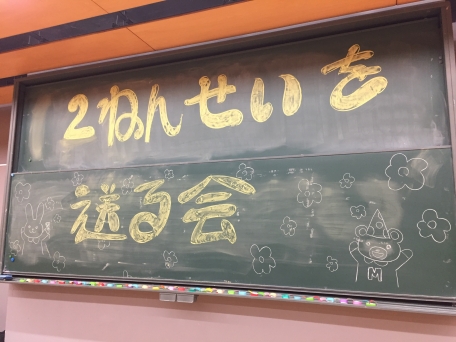 2ねんせいを
送る会
M